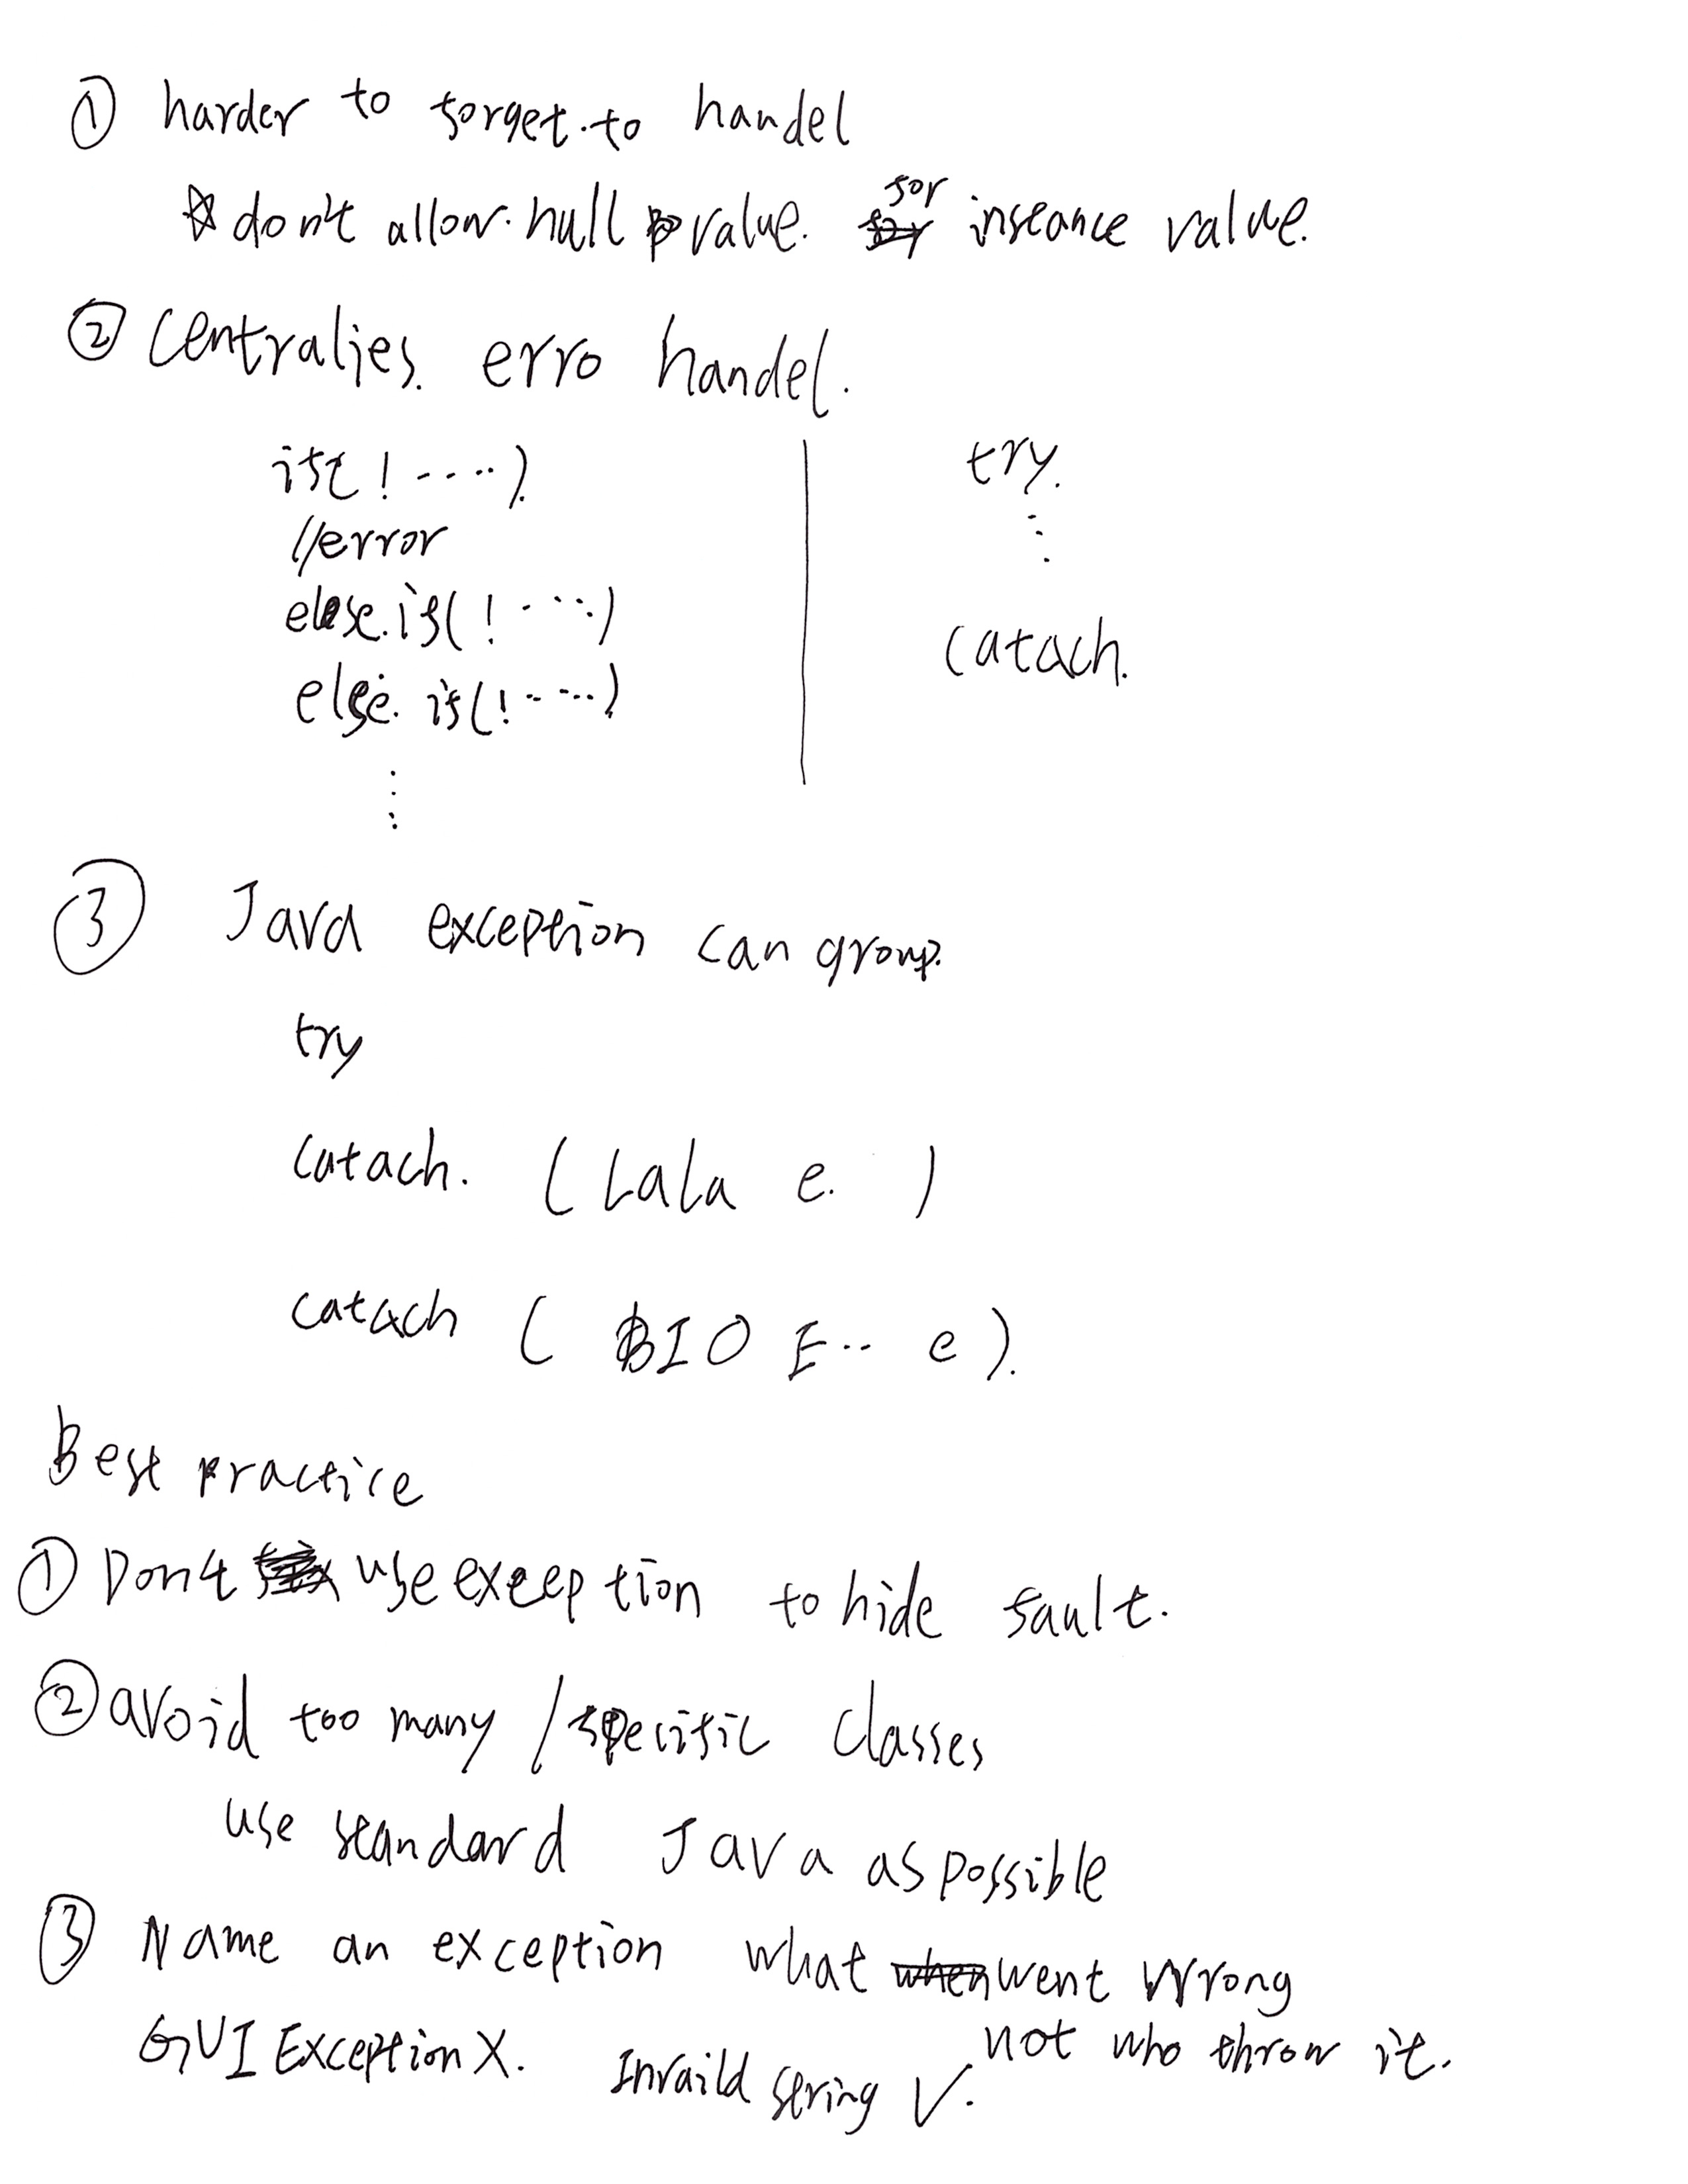 ① harder to forget to handel
☆ don't allow null value. for instance value.
② Centralies erro handel.
if( ! ....)
//error
else if( ! ....)
else if( ! ....)
⋮
try.
⋮
catach.
③ Java exception can group.
try
catach. ( Lala e. )
catach ( BIO E.. e ).
Best practice
① Don't use exception to hide fault.
② avoid too many / specific classes
use standard Java as possible
③ Name an exception what went wrong
not who throw it.
GUI Exception X. Invaild string V.